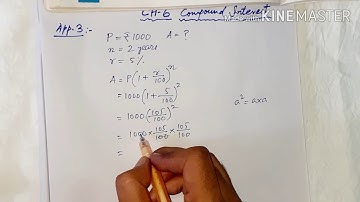 CH-6 Compound Interest
Made With
KINEMASTER
App.3:- P = ₹1000 A = ?
n = 2 years
r = 5%
A = P(1 + r/100)^n
= 1000(1 + 5/100)^2
= 1000(105/100)^2 a² = a×a
= 1000 × 105/100 × 105/100
=